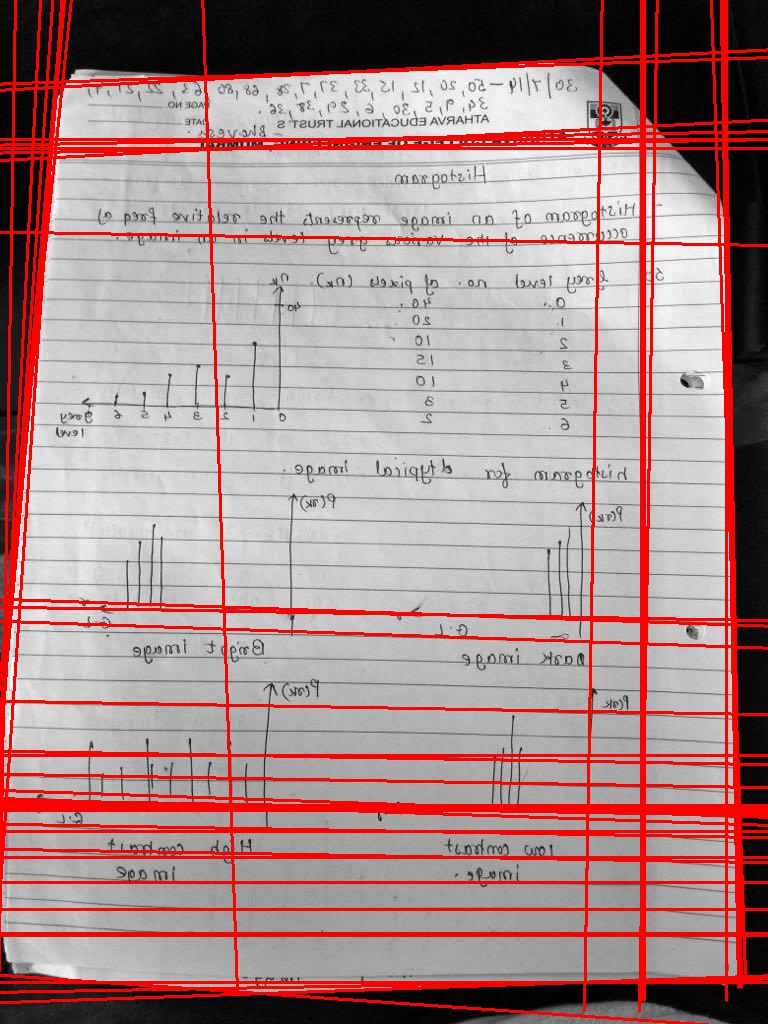 30/7/19 - 50, 20, 12, 15, 33, 37, 7, 28, 68, 80, 63, 22, 21,
34, 9, 5, 30, 6, 29, 38, 36.
ATHARVA EDUCATIONAL TRUST'S
PAGE NO.
DATE
Histogram
- Histogram of an image represents the relative freq of
occurrence of the various grey levels in an image.
Grey level no. of pixels (nk).
0. 40.
1. 20
2 10
3 15
4 10
5 3
6. 2
nk
40
0 1 2 3 4 5 6 grey
level
histogram for typical image.
P(rk)
G.L
Dark image
P(rk)
G.L
Bright image
P(rk
low contrast
image.
P(rk)
G.L
High contrast
image